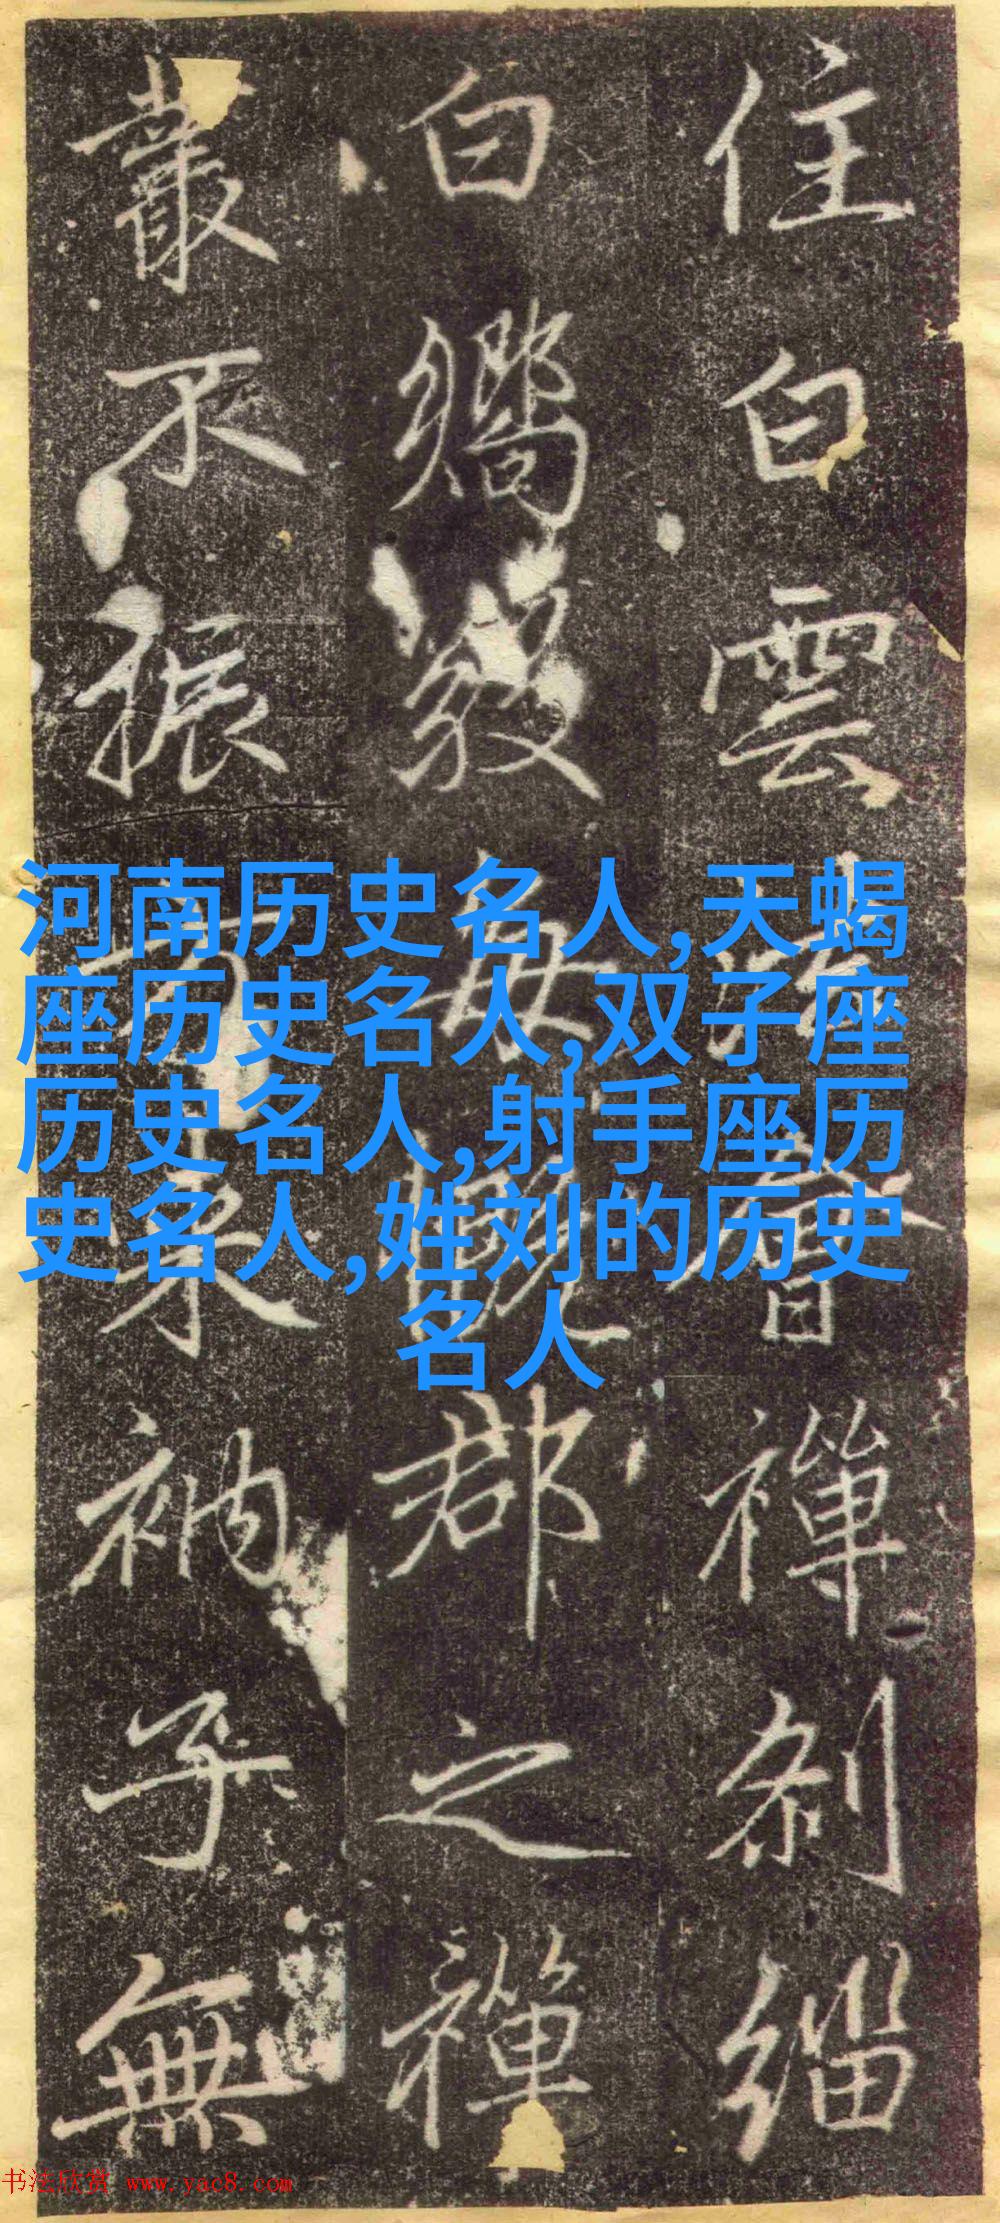 住白雲
禪剎緇
白
每
郡之禪
叢不振
東衲子無
河南历史名人,天蝎
座历史名人,双子座
历史名人,射手座历
史名人,姓刘的历史
名人
书法欣赏 www.yac8.com